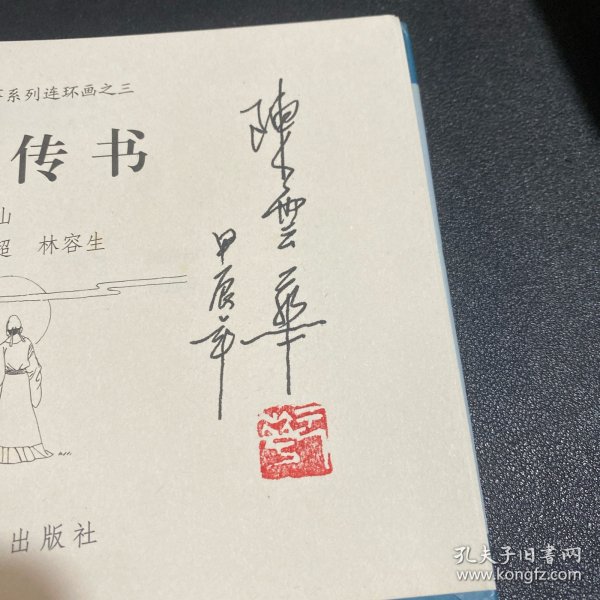 系列连环画之三
传书
山
超 林容生
出版社
陳雲華
甲辰年
孔夫子旧书网
www.kongfz.com